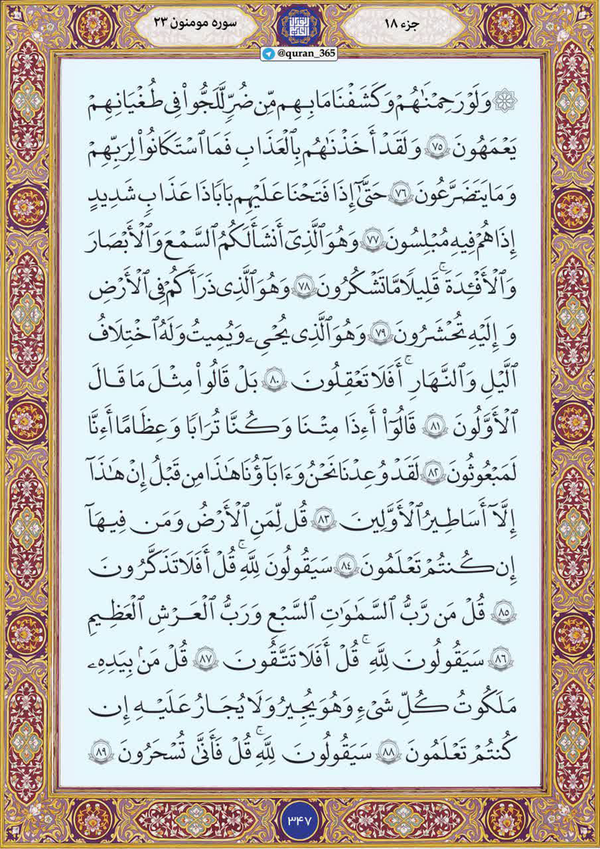 جزء ۱۸
سوره مومنون ۲۳
@quran_365
۞ وَلَوْ رَحِمْنَٰهُمْ وَكَشَفْنَا مَا بِهِم مِّن ضُرٍّ لَّلَجُّواْ فِى طُغْيَٰنِهِمْ
يَعْمَهُونَ ۷۵ وَلَقَدْ أَخَذْنَٰهُم بِٱلْعَذَابِ فَمَا ٱسْتَكَانُواْ لِرَبِّهِمْ
وَمَا يَتَضَرَّعُونَ ۷۶ حَتَّىٰٓ إِذَا فَتَحْنَا عَلَيْهِم بَابًا ذَا عَذَابٍ شَدِيدٍ
إِذَا هُمْ فِيهِ مُبْلِسُونَ ۷۷ وَهُوَ ٱلَّذِىٓ أَنشَأَ لَكُمُ ٱلسَّمْعَ وَٱلْأَبْصَٰرَ
وَٱلْأَفْـِٔدَةَ ۚ قَلِيلًا مَّا تَشْكُرُونَ ۷۸ وَهُوَ ٱلَّذِى ذَرَأَكُمْ فِى ٱلْأَرْضِ
وَإِلَيْهِ تُحْشَرُونَ ۷۹ وَهُوَ ٱلَّذِى يُحْىِۦ وَيُمِيتُ وَلَهُ ٱخْتِلَٰفُ
ٱلَّيْلِ وَٱلنَّهَارِ ۚ أَفَلَا تَعْقِلُونَ ۸۰ بَلْ قَالُواْ مِثْلَ مَا قَالَ
ٱلْأَوَّلُونَ ۸۱ قَالُوٓاْ أَءِذَا مِتْنَا وَكُنَّا تُرَابًا وَعِظَٰمًا أَءِنَّا
لَمَبْعُوثُونَ ۸۲ لَقَدْ وُعِدْنَا نَحْنُ وَءَابَآؤُنَا هَٰذَا مِن قَبْلُ إِنْ هَٰذَآ
إِلَّآ أَسَٰطِيرُ ٱلْأَوَّلِينَ ۸۳ قُل لِّمَنِ ٱلْأَرْضُ وَمَن فِيهَآ
إِن كُنتُمْ تَعْلَمُونَ ۸۴ سَيَقُولُونَ لِلَّهِ ۚ قُلْ أَفَلَا تَذَكَّرُونَ
۸۵ قُلْ مَن رَّبُّ ٱلسَّمَٰوَٰتِ ٱلسَّبْعِ وَرَبُّ ٱلْعَرْشِ ٱلْعَظِيمِ
۸۶ سَيَقُولُونَ لِلَّهِ ۚ قُلْ أَفَلَا تَتَّقُونَ ۸۷ قُلْ مَنۢ بِيَدِهِۦ
مَلَكُوتُ كُلِّ شَىْءٍ وَهُوَ يُجِيرُ وَلَا يُجَارُ عَلَيْهِ إِن
كُنتُمْ تَعْلَمُونَ ۸۸ سَيَقُولُونَ لِلَّهِ ۚ قُلْ فَأَنَّىٰ تُسْحَرُونَ ۸۹
۳۴۷